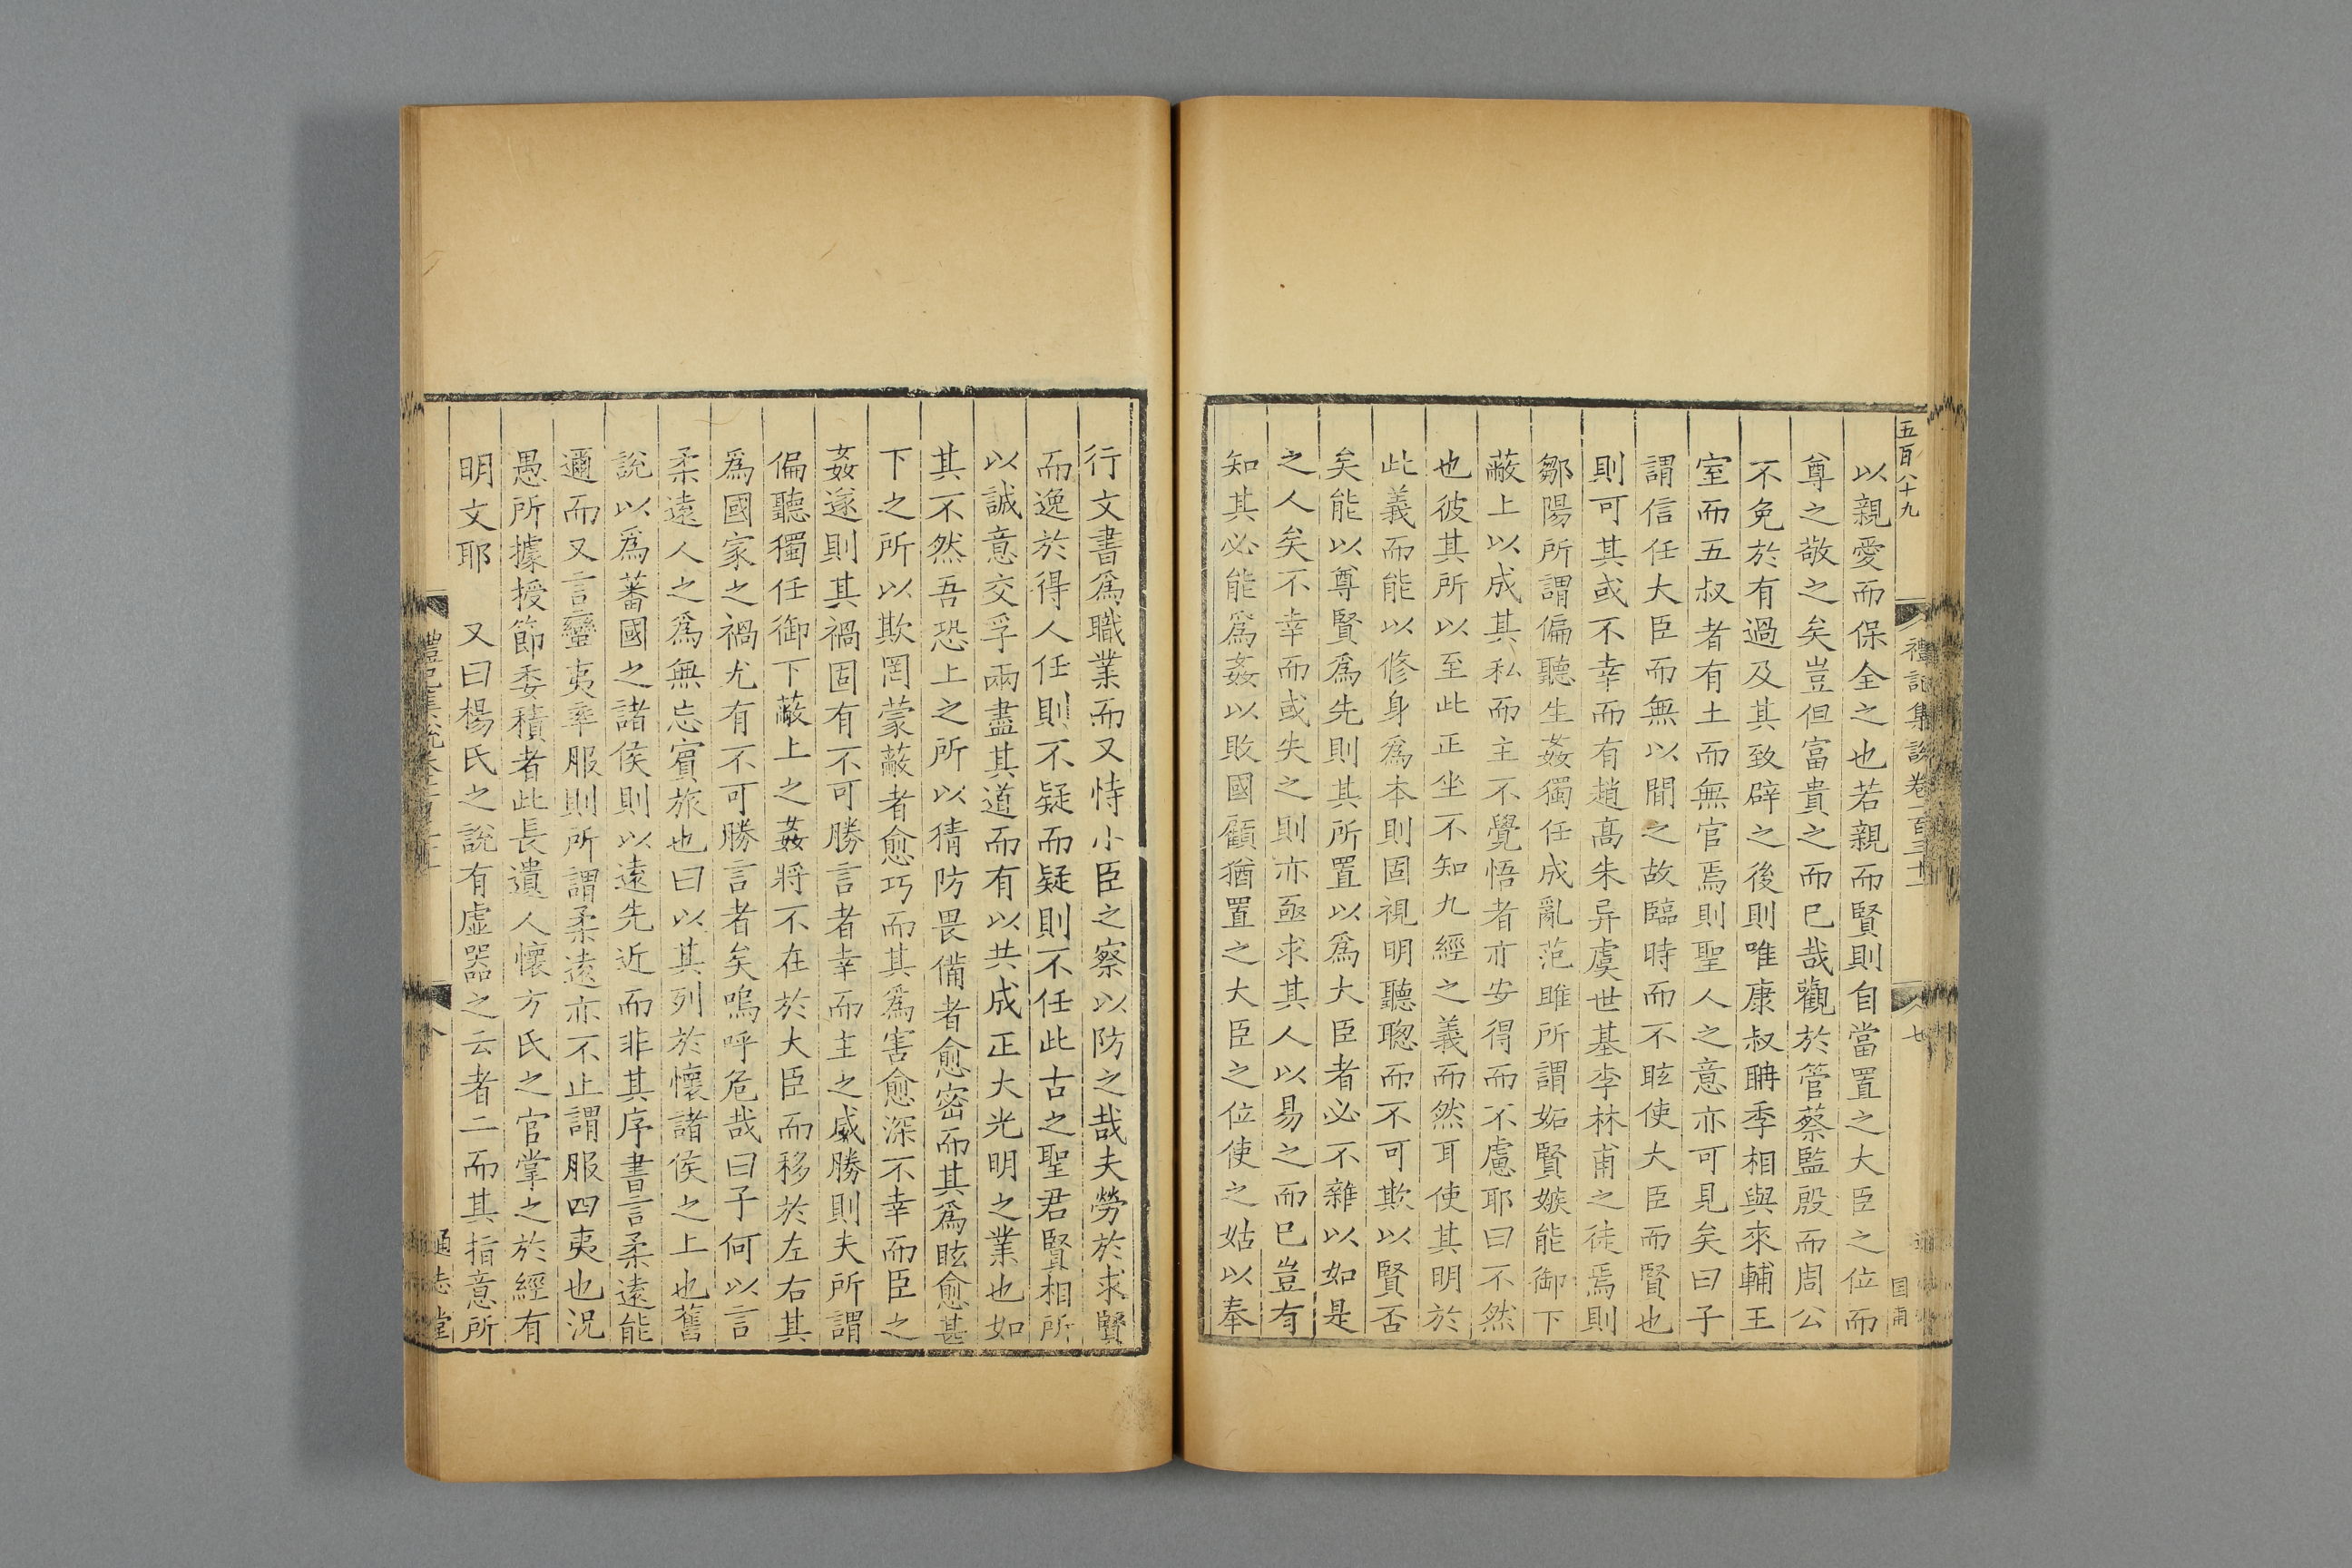 五百八十九
禮記集說卷一百三十
七
以親愛而保全之也若親而賢則自當置之大臣之位而
尊之敬之矣豈但富貴之而已哉觀於管蔡監殷而周公
不免於有過及其致辟之後則唯康叔聃季相與來輔王
室而五叔者有土而無官焉則聖人之意亦可見矣曰子
謂信任大臣而無以間之故臨時而不眩使大臣而賢也
則可其或不幸而有趙髙朱异虞世基李林甫之徒焉則
鄒陽所謂偏聽生姦獨任成亂范雎所謂妬賢嫉能御下
蔽上以成其私而主不覺悟者亦安得而不慮耶曰不然
也彼其所以至此正坐不知九經之義而然耳使其明於
此義而能以修身爲本則固視明聽聰而不可欺以賢否
矣能以尊賢爲先則其所置以爲大臣者必不雜以如是
之人矣不幸而或失之則亦亟求其人以易之而已豈有
知其必能爲姦以敗國顧猶置之大臣之位使之姑以奉
行文書爲職業而又恃小臣之察以防之哉夫勞於求賢
而逸於得人任則不疑而疑則不任此古之聖君賢相所
以誠意交孚兩盡其道而有以共成正大光明之業也如
其不然吾恐上之所以猜防畏備者愈密而其爲眩愈甚
下之所以欺罔蒙蔽者愈巧而其爲害愈深不幸而臣之
姦遂則其禍固有不可勝言者幸而主之威勝則夫所謂
偏聽獨任御下蔽上之姦將不在於大臣而移於左右其
爲國家之禍尤有不可勝言者矣嗚呼危哉曰子何以言
柔遠人之爲無忘賓旅也曰以其列於懷諸侯之上也舊
說以爲蕃國之諸侯則以遠先近而非其序書言柔遠能
邇而又言蠻夷率服則所謂柔遠亦不止謂服四夷也況
愚所據授節委積者此長遺人懷方氏之官掌之於經有
明文耶　又曰楊氏之說有虛器之云者二而其指意所
八
通志堂